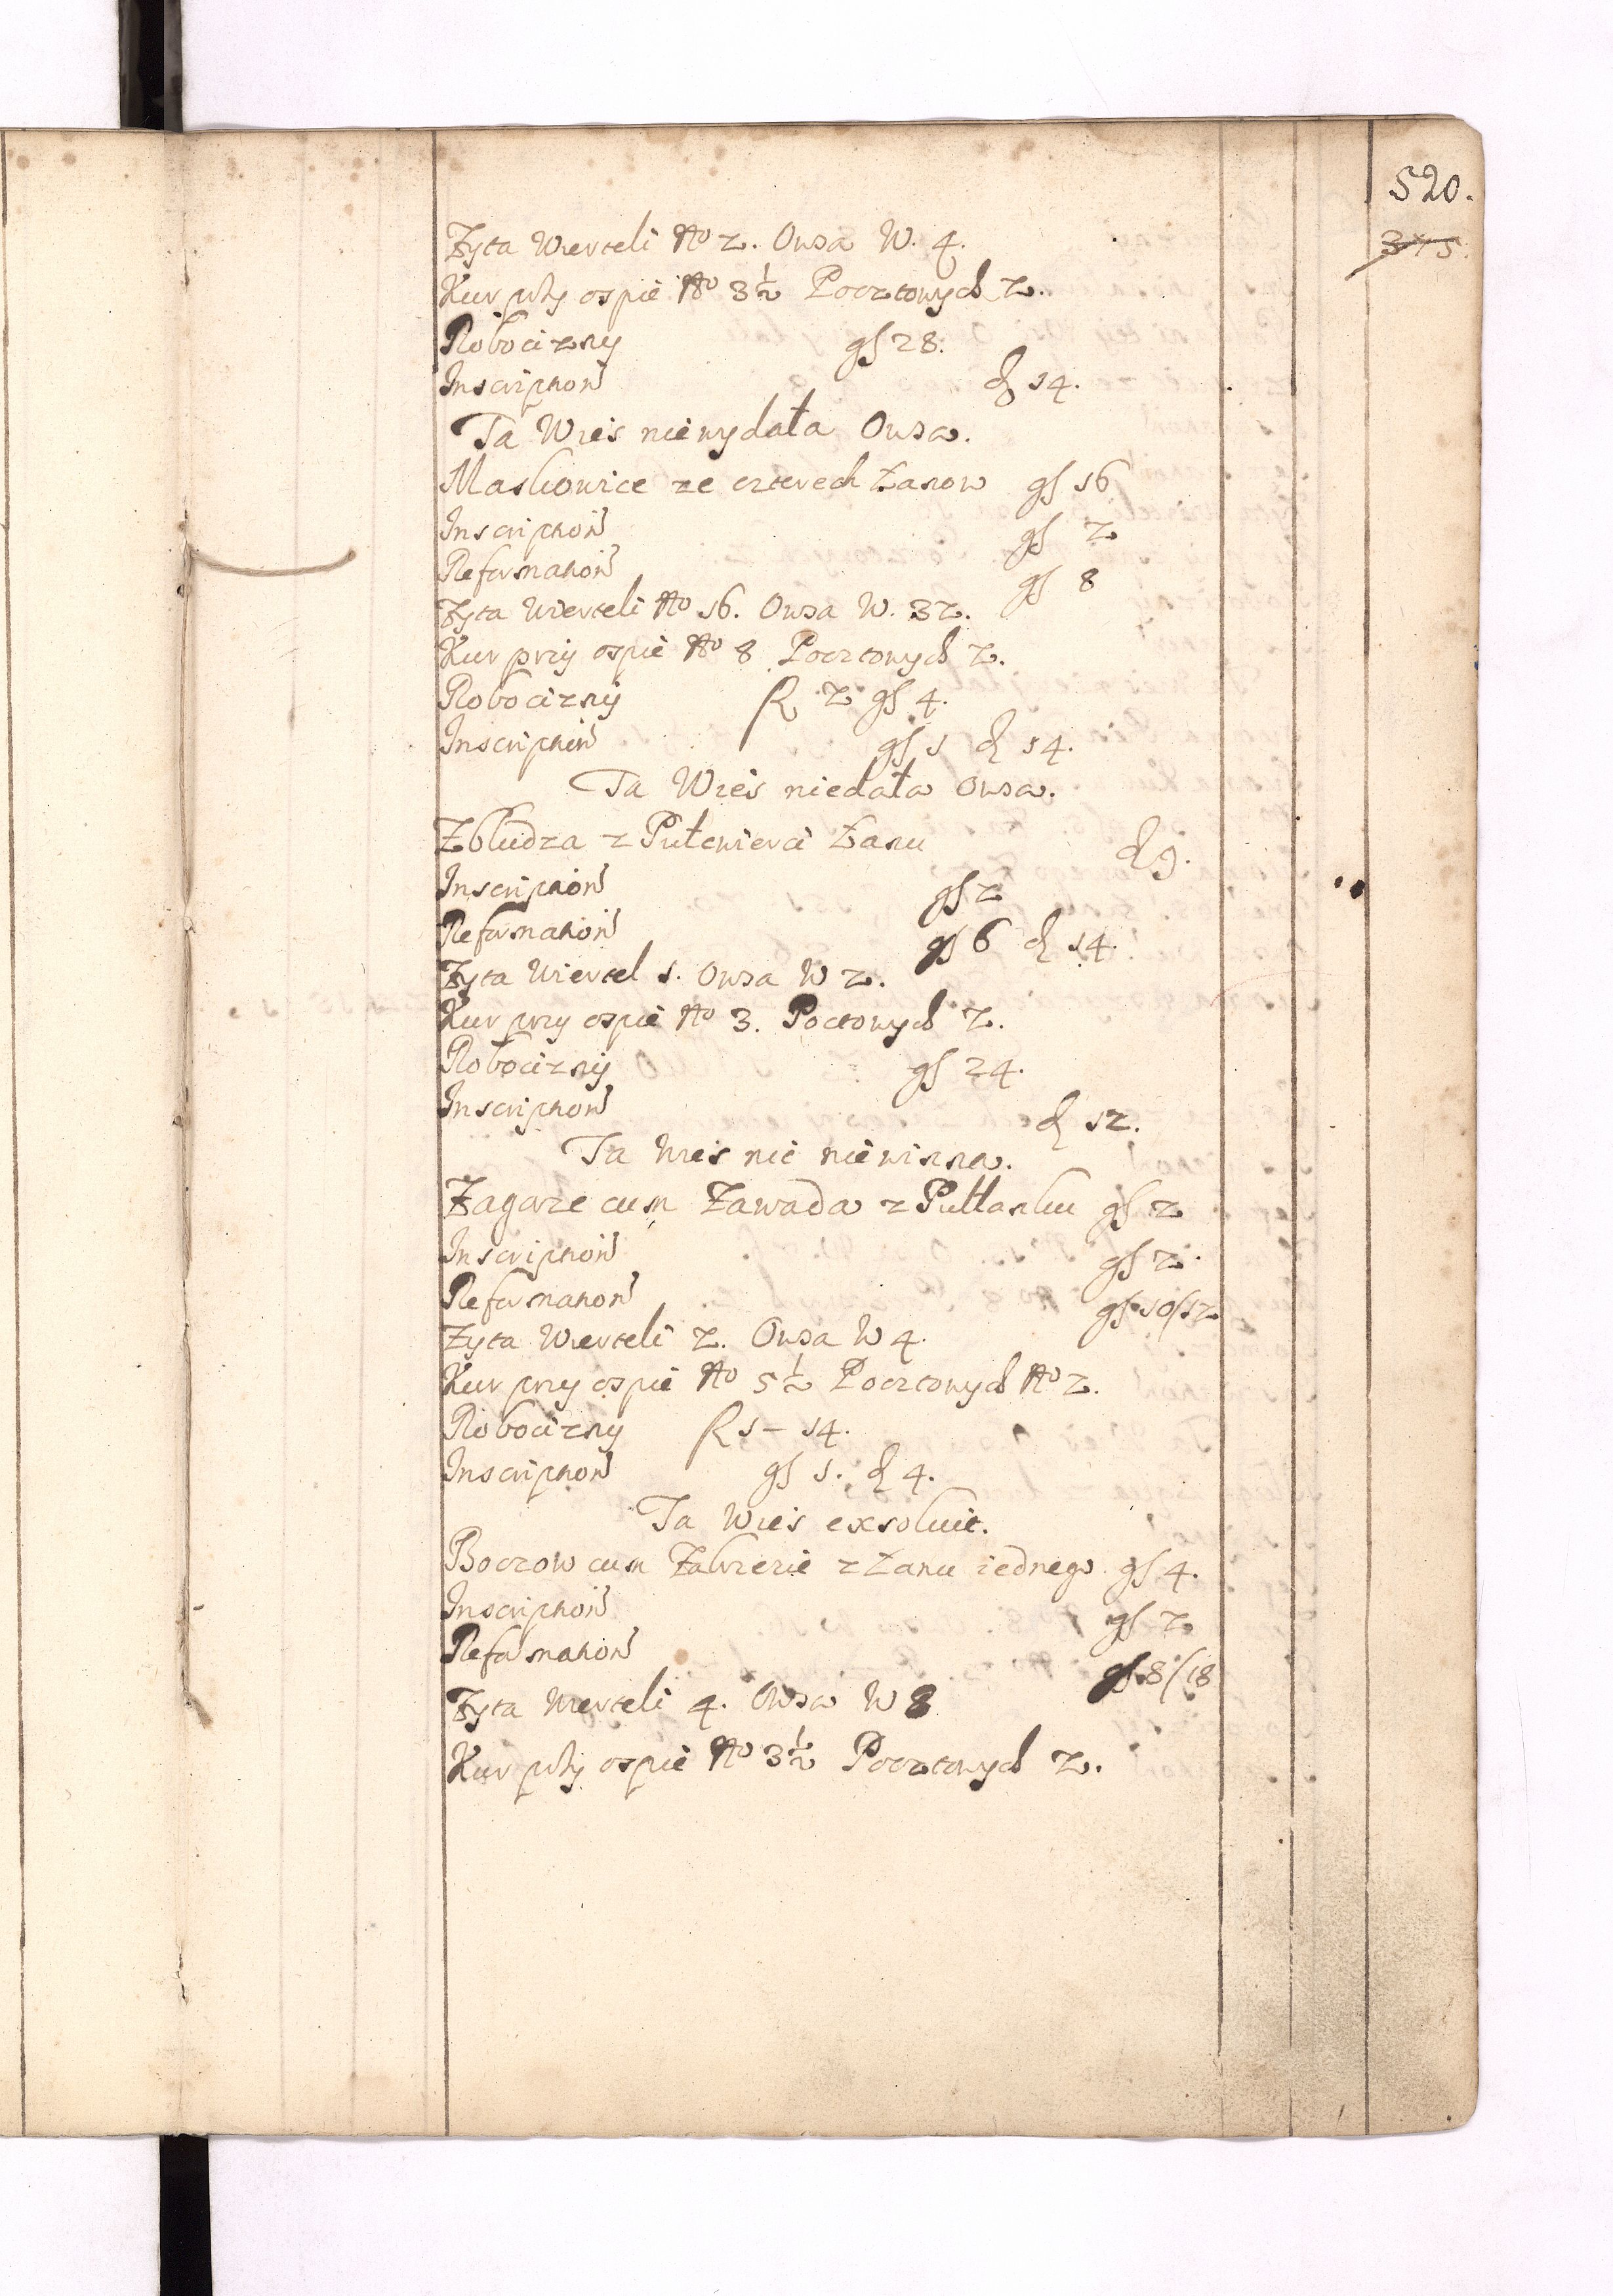 520.
375.
Żyta Wierteli No 2. Owsa W. 4.
Kur przy ospie No 3½ Pocztowych 2.
Robocizny gs 28.
Inscription d 14.
Ta Wieś niewydała Owsa.
Maskowice ze czterech Łanow gs 16
Inscription gs 2
Reformation gs 8
Żyta Wierteli No 16. Owsa W. 32.
Kur przy ospie No 8 Pocztowych 2.
Robocizny R 2 gs 4.
Inscription gs 1 d 14.
Ta Wieś niedała Owsa.
Zbludza z Pułcwierci Łanu d 9.
Inscription gs 2
Reformation gs 6 d 14.
Żyta Wiertel 1. Owsa W 2.
Kur przy ospie No 3. Poctowych 2.
Robocizny gs 24.
Inscription d 12.
Ta Wieś nic niewinna.
Zagorze cum Zawada z Pułłanku gs 2
Inscription gs 2.
Reformation gs 10/12
Żyta Wierteli 2. Owsa W 4.
Kur przy ospie No 5½ Pocztowych No 2.
Robocizny R 1 - 14.
Inscription gs 1. d 4.
Ta Wieś exsoluit.
Boczow cum Zabrzezie z Łanu iednego gs 4.
Inscription gs 2
Reformation gs 8/18
Żyta Wierteli 4. Owsa W 8
Kur przy ospie No 3½ Pocztowych 2.